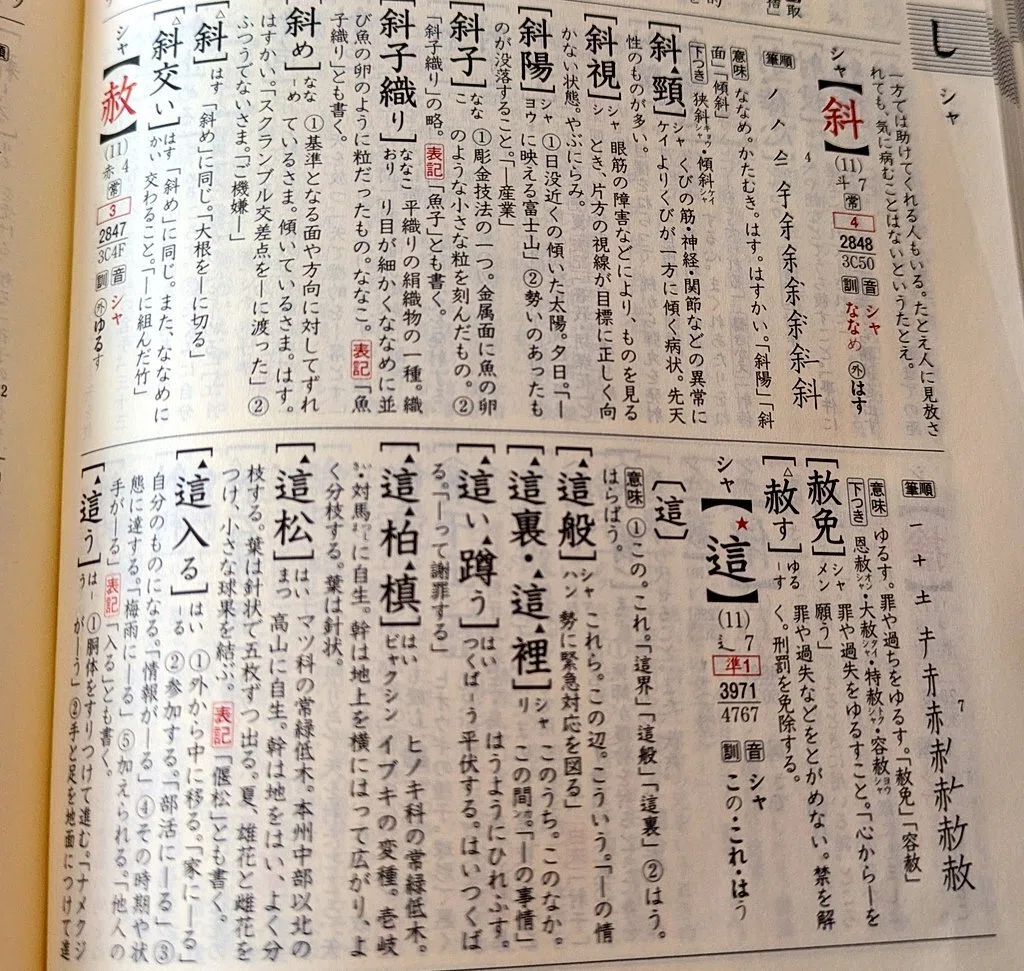 し
シャ
一方では助けてくれる人もいる。たとえ人に見放さ
れても、気に病むことはないというたとえ。
シャ
【斜】
(11)
斗 7
常
4
2848
3C50
音 シャ
訓 ななめ 外 はす
筆順
ノ 人 亼 4 全 余 余 余 斜 斜 斜
意味 ななめ。かたむき。はす。はすかい。「斜陽」「斜
面」「傾斜」
下つき 狭斜キョウシャ・傾斜ケイシャ
[斜▲頸] シャケイ くびの筋・神経・関節などの異常に
よりくびが一方に傾く病状。先天
性のものが多い。
[斜視] シャシ 眼筋の障害などにより、ものを見る
とき、片方の視線が目標に正しく向
かない状態。やぶにらみ。
[斜陽] シャヨウ ①日没近くの傾いた太陽。夕日。「—
に映える富士山」 ②勢いのあったも
のが没落すること。「—産業」
[斜子] ななこ ①彫金技法の一つ。金属面に魚の卵
のような小さな粒を刻んだもの。 ②
「斜子織り」の略。 表記 「魚子」とも書く。
[斜子織り] ななこおり 平織りの絹織物の一種。織
り目が細かくななめに並
び魚の卵のように粒だったもの。ななこ。 表記 「魚
子織り」とも書く。
[斜め] なな-め ①基準となる面や方向に対してずれ
ているさま。傾いているさま。はす。
はすかい。「スクランブル交差点を—に渡った」 ②
ふつうでないさま。「ご機嫌—」
[△斜] はす 「斜め」に同じ。「大根を—に切る」
[△斜交い] はすかい 「斜め」に同じ。また、ななめに
交わること。「—に組んだ竹」
シャ
【赦】
(11)
赤 4
常
3
2847
3C4F
音 シャ
訓 外 ゆるす
筆順
一 十 土 耂 赤 赤 7 赤 赦 赦 赦
意味 ゆるす。罪や過ちをゆるす。「赦免」「容赦」
下つき 恩赦オンシャ・大赦タイシャ・特赦トクシャ・容赦ヨウシャ
[赦免] シャメン 罪や過失をゆるすこと。「心から—を
願う」
[△赦す] ゆる-す 罪や過失などをとがめない。禁を解
く。刑罰を免除する。
シャ
【★這】
(11)
辶 7
準1
3971
4767
音 シャ
訓 この・これ・はう
[這]
意味 ①この。これ。「這界」「這般」「這裏」 ②はう。
はらばう。
[▲這般] シャハン これら。この辺。こういう。「—の情
勢に緊急対応を図る」
[▲這裏・▲這▲裡] シャリ このうち。このなか。
この間。「—の事情」
[▲這い▲蹲う] はいつくば-う はうようにひれふす。
平伏する。はいつくば
る。「—って謝罪する」
[▲這▲柏▲槙] はいビャクシン ヒノキ科の常緑低木。
イブキの変種。壱岐
・対馬に自生。幹は地上を横にはって広がり、よ
く分枝する。葉は針状。
[▲這松] はいまつ マツ科の常緑低木。本州中部以北の
高山に自生。幹は地をはい、よく分
枝する。葉は針状で五枚ずつ出る。夏、雄花と雌花を
つけ、小さな球果を結ぶ。 表記 「偃松」とも書く。
[▲這入る] はい-る ①外から中に移る。「家に—る」
②参加する。「部活に—る」 ③
自分のものになる。「情報が—る」 ④その時期や状
態に達する。「梅雨に—る」 ⑤加えられる。「他人の
手が—る」 表記 「入る」とも書く。
[▲這う] は-う ①胴体をすりつけて進む。「ナメクジ
が—う」 ②手と足を地面につけて進